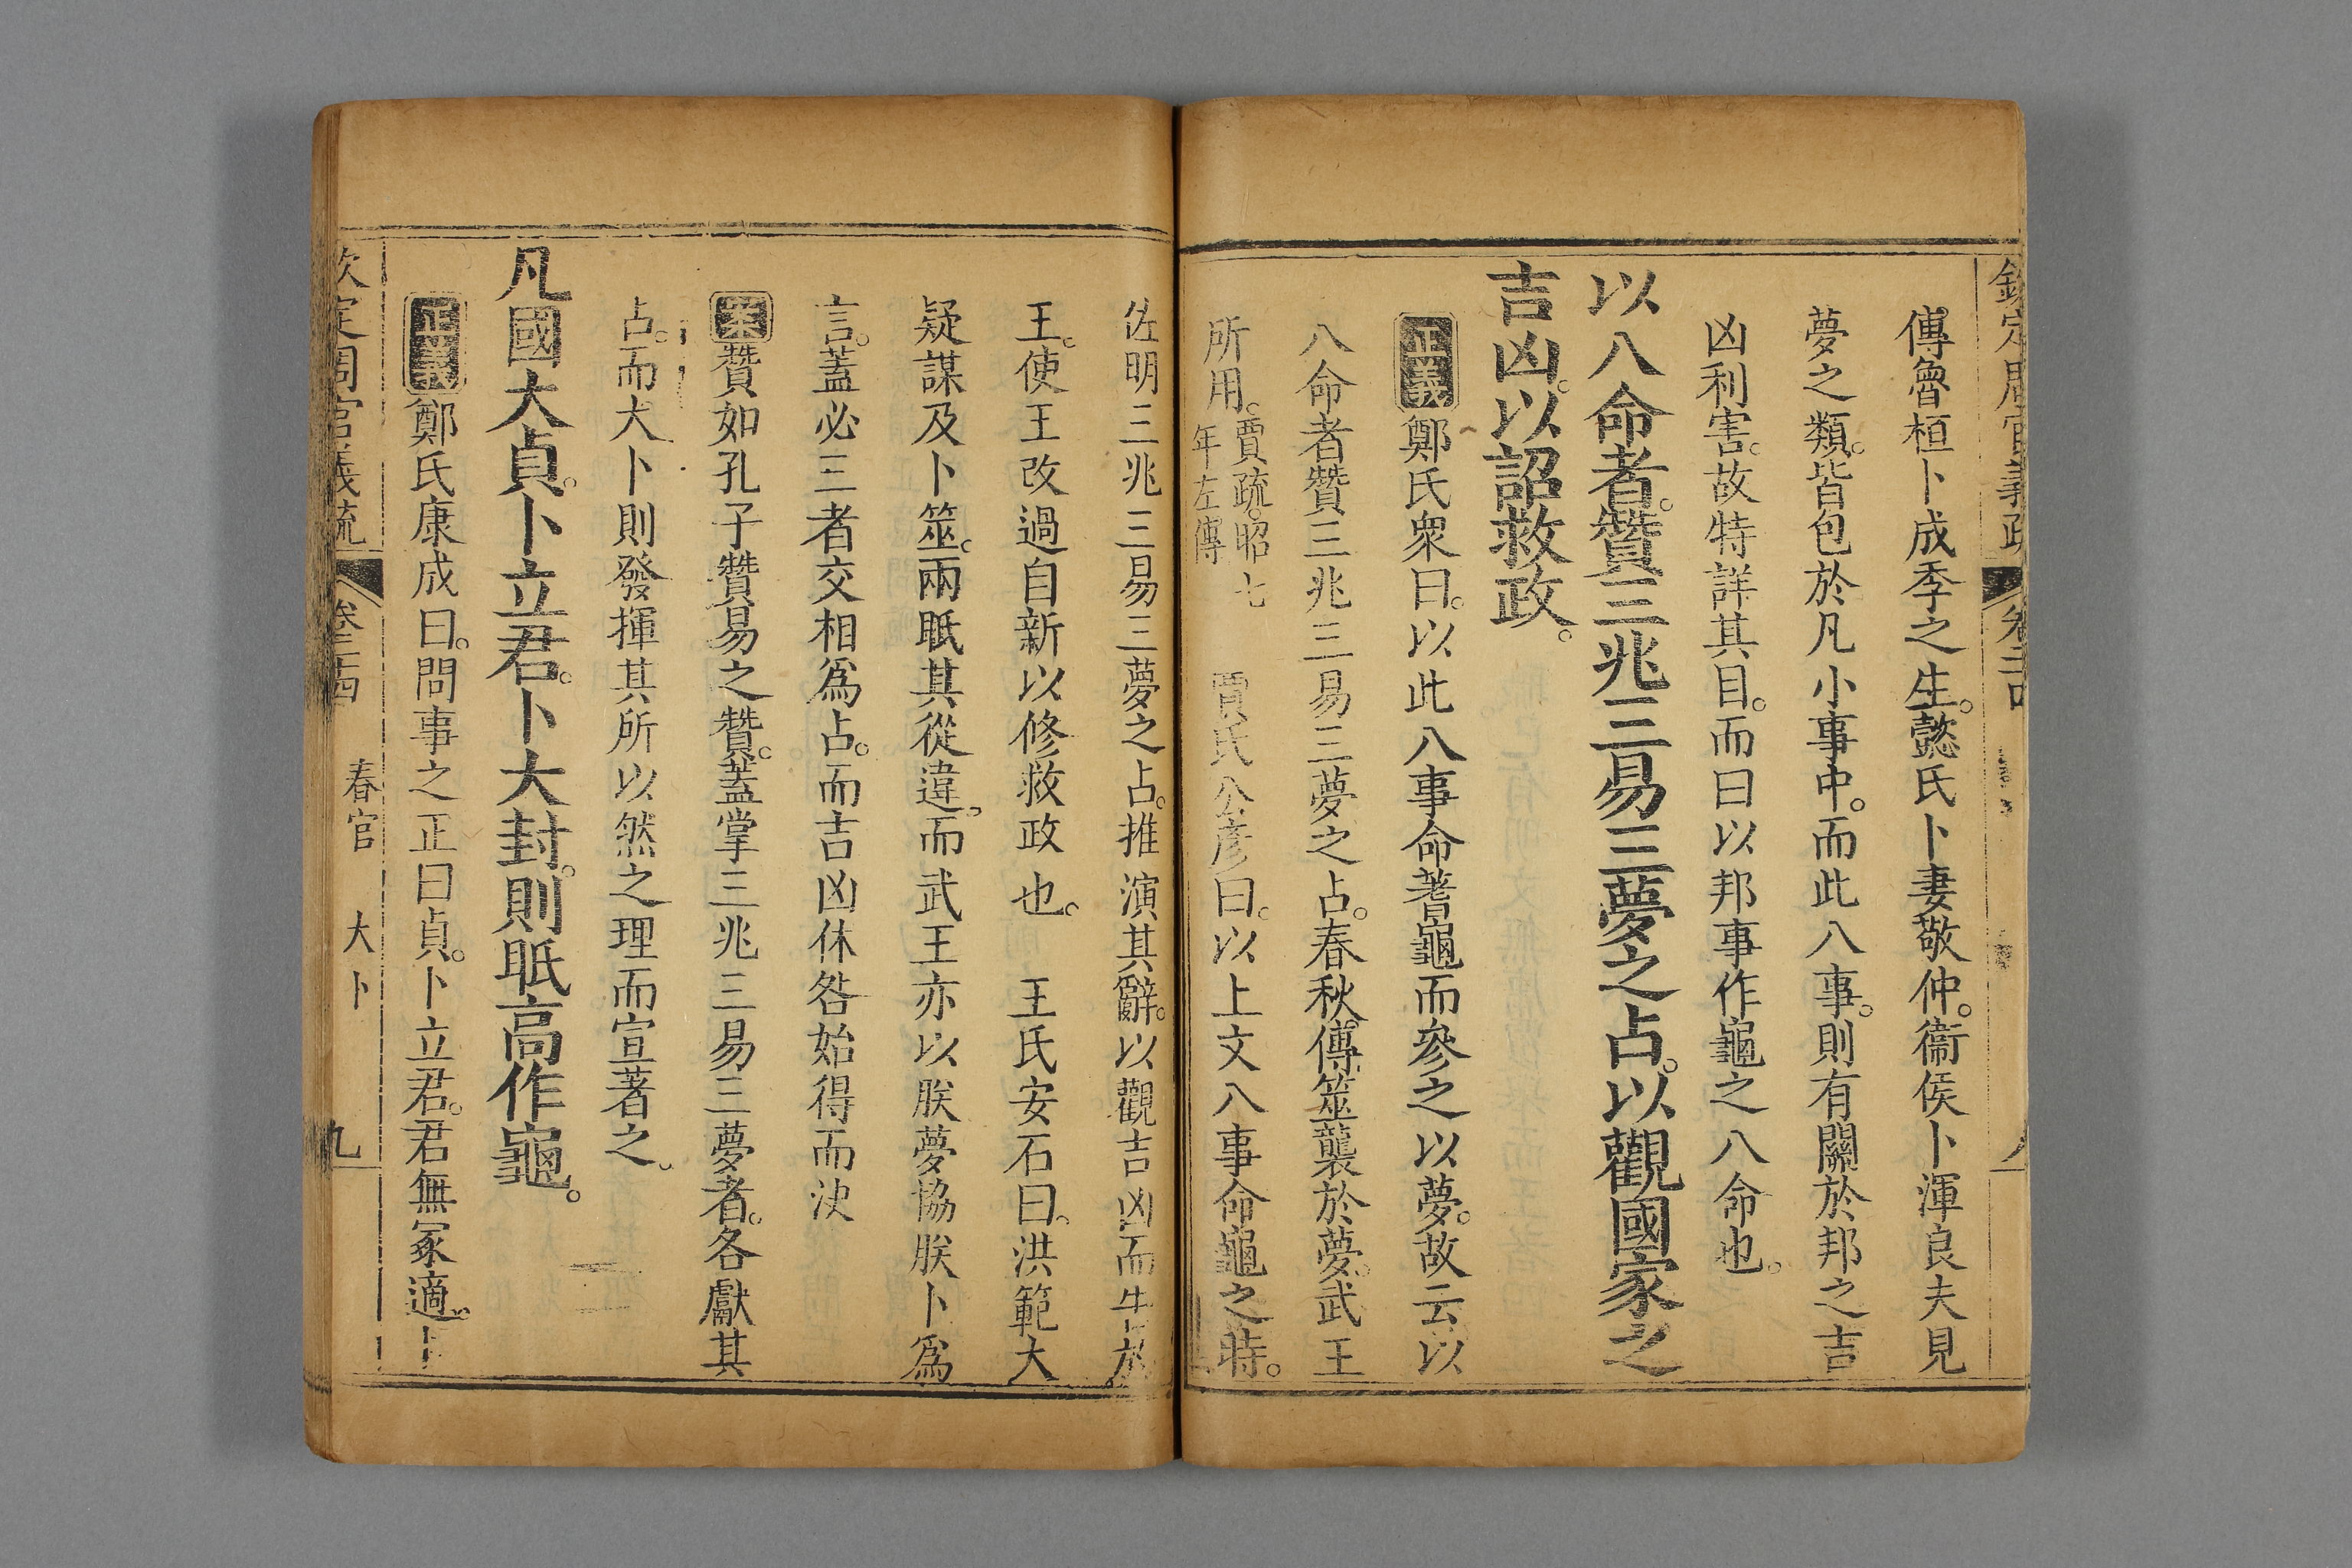 欽定周官義疏 卷三四
傳魯桓卜成季之生。懿氏卜妻敬仲。衞侯卜渾良夫見
夢之類。皆包於凡小事中。而此八事。則有關於邦之吉
凶利害。故特詳其目。而曰以邦事作龜之八命也。
以八命者。贊三兆三易三夢之占。以觀國家之
吉凶。以詔救政。
正義鄭氏衆曰。以此八事命蓍龜而參之以夢。故云以
八命者贊三兆三易三夢之占。春秋傳。筮襲於夢。武王
所用。賈疏。昭七年左傳 賈氏公彦曰。以上文八事命龜之時。
佐明三兆三易三夢之占。推演其辭。以觀吉凶而告於
王。使王改過自新以修救政也。 王氏安石曰。洪範大
疑謀及卜筮。兩眡其從違。而武王亦以朕夢協朕卜爲
言。蓋必三者交相爲占。而吉凶休咎始得而決
案贊如孔子贊易之贊。蓋掌三兆三易三夢者。各獻其
占。而大卜則發揮其所以然之理而宣著之。
凡國大貞。卜立君。卜大封。則眡高作龜。
正義鄭氏康成曰。問事之正曰貞。卜立君。君無冢適。卜
欽定周官義疏 卷三四 春官 大卜 九